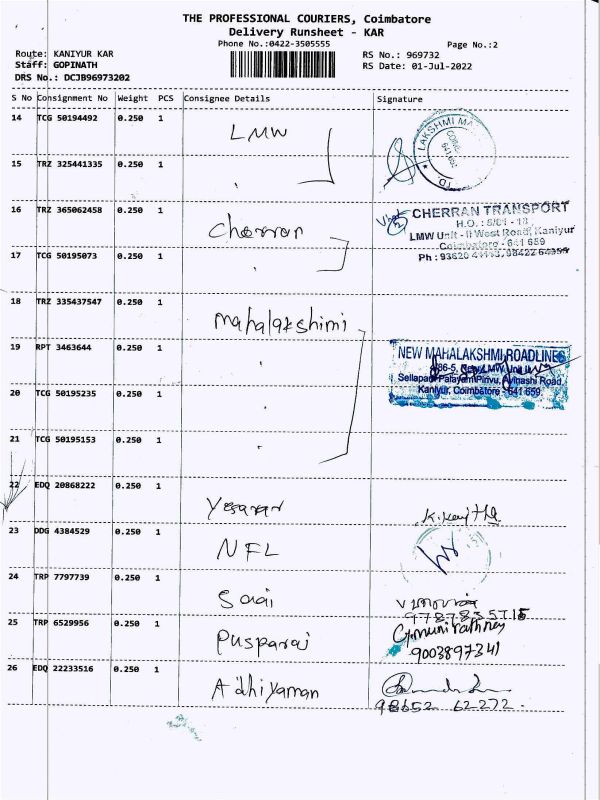 THE PROFESSIONAL COURIERS, Coimbatore
Delivery Runsheet - KAR
Phone No.:0422-3505555
Page No.:2
Route: KANIYUR KAR
RS No.: 969732
Staff: GOPINATH
RS Date: 01-Jul-2022
DRS No.: DCJB96973202
S No Consignment No Weight PCS Consignee Details Signature
14 TCG 50194492 0.250 1 LMW
LAKSHMI MA
15 TRZ 325441335 0.250 1
16 TRZ 365062458 0.250 1 Cherran
CHERRAN TRANSPORT
H.O. : 5/01 - 18,
LMW Unit - II West Road, Kaniyur
Coimbatore - 641 659
17 TCG 50195073 0.250 1
18 TRZ 335437547 0.250 1 Mahalakshimi
19 RPT 3463644 0.250 1
NEW MAHALAKSHMI ROADLINES
Avinashi Road,
Kaniyur, Coimbatore - 641 659.
20 TCG 50195235 0.250 1
21 TCG 50195153 0.250 1
22 EDQ 20868222 0.250 1
23 DDG 4384529 0.250 1 NFL
24 TRP 7797739 0.250 1
25 TRP 6529956 0.250 1 Pusparaj
9003897341
26 EDQ 22233516 0.250 1 Adhiyaman
98652 62272.